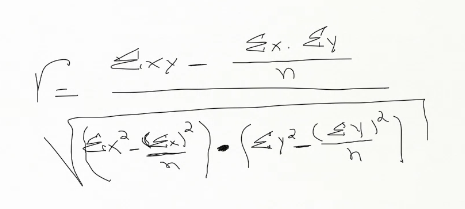 r = (Σxy − (Σx. Σy)/n) / √((Σx² − (Σx)²/n) • (Σy² − (Σy)²/n))